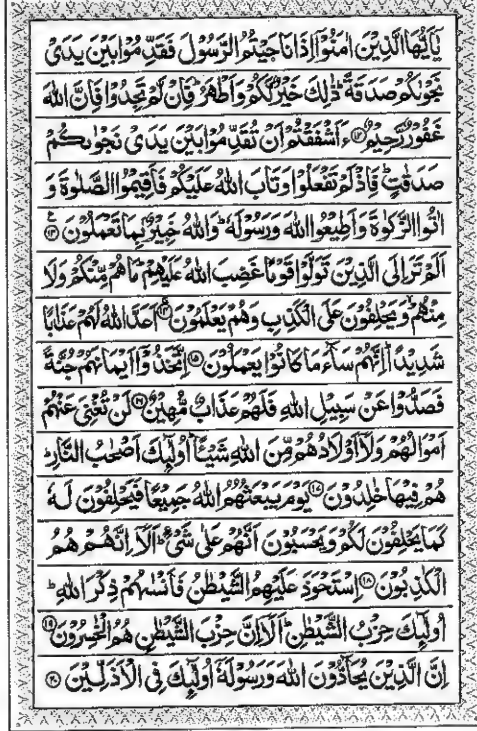 يٰۤاَيُّهَا الَّذِيْنَ اٰمَنُوْۤا اِذَا نَاجَيْتُمُ الرَّسُوْلَ فَقَدِّمُوْا بَيْنَ يَدَيْ
نَجْوٰىكُمْ صَدَقَةً ؕ ذٰلِكَ خَيْرٌ لَّكُمْ وَاَطْهَرُ ؕ فَاِنْ لَّمْ تَجِدُوْا فَاِنَّ اللّٰهَ
غَفُوْرٌ رَّحِيْمٌ ۝۱۲ ءَاَشْفَقْتُمْ اَنْ تُقَدِّمُوْا بَيْنَ يَدَيْ نَجْوٰىكُمْ
صَدَقٰتٍ ؕ فَاِذْ لَمْ تَفْعَلُوْا وَتَابَ اللّٰهُ عَلَيْكُمْ فَاَقِيْمُوا الصَّلٰوةَ وَ
اٰتُوا الزَّكٰوةَ وَاَطِيْعُوا اللّٰهَ وَرَسُوْلَهٗ ؕ وَاللّٰهُ خَبِيْرٌۢ بِمَا تَعْمَلُوْنَ ۝۱۳
اَلَمْ تَرَ اِلَى الَّذِيْنَ تَوَلَّوْا قَوْمًا غَضِبَ اللّٰهُ عَلَيْهِمْ ؕ مَا هُمْ مِّنْكُمْ وَلَا
مِنْهُمْ ۙ وَيَحْلِفُوْنَ عَلَى الْكَذِبِ وَهُمْ يَعْلَمُوْنَ ۝۱۴ اَعَدَّ اللّٰهُ لَهُمْ عَذَابًا
شَدِيْدًا ؕ اِنَّهُمْ سَآءَ مَا كَانُوْا يَعْمَلُوْنَ ۝۱۵ اِتَّخَذُوْۤا اَيْمَانَهُمْ جُنَّةً
فَصَدُّوْا عَنْ سَبِيْلِ اللّٰهِ فَلَهُمْ عَذَابٌ مُّهِيْنٌ ۝۱۶ لَنْ تُغْنِيَ عَنْهُمْ
اَمْوَالُهُمْ وَلَاۤ اَوْلَادُهُمْ مِّنَ اللّٰهِ شَيْـًٔا ؕ اُولٰٓئِكَ اَصْحٰبُ النَّارِ ؕ
هُمْ فِيْهَا خٰلِدُوْنَ ۝۱۷ يَوْمَ يَبْعَثُهُمُ اللّٰهُ جَمِيْعًا فَيَحْلِفُوْنَ لَهٗ
كَمَا يَحْلِفُوْنَ لَكُمْ وَيَحْسَبُوْنَ اَنَّهُمْ عَلٰى شَيْءٍ ؕ اَلَاۤ اِنَّهُمْ هُمُ
الْكٰذِبُوْنَ ۝۱۸ اِسْتَحْوَذَ عَلَيْهِمُ الشَّيْطٰنُ فَاَنْسٰهُمْ ذِكْرَ اللّٰهِ ؕ
اُولٰٓئِكَ حِزْبُ الشَّيْطٰنِ ؕ اَلَاۤ اِنَّ حِزْبَ الشَّيْطٰنِ هُمُ الْخٰسِرُوْنَ ۝۱۹
اِنَّ الَّذِيْنَ يُحَآدُّوْنَ اللّٰهَ وَرَسُوْلَهٗۤ اُولٰٓئِكَ فِي الْاَذَلِّيْنَ ۝۲۰